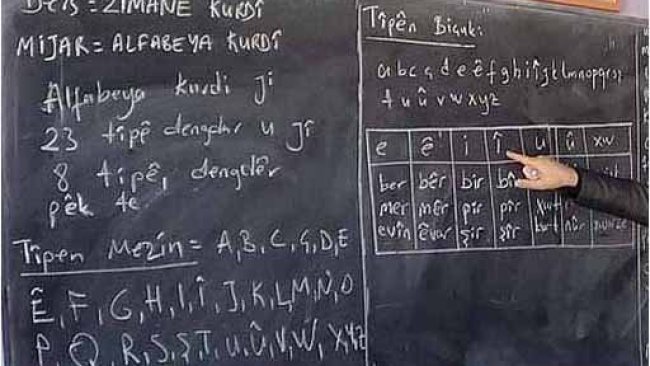 Ders = ZIMANE KURDÎ
MIJAR = ALFABEYA KURDÎ
Alfabeya kurdi ji
23 tipê dengdar u jî
8 tipê, dengdêr
pêk te
Tîpen Mezin = A, B, C, Ç, D, E
Ê, F, G, H, I, Î, J, K, L, M, N, O
P, Q, R, S, Ş, T, U, Û, V, W, X, Y, Z
Tîpên Biçuk:
a b c ç d e ê f g h i î j k l m n o p q r s ş
t u û v w x y z
e ê i î u û xw
ber bêr bir bîr
mer mêr pir pîr
evîn êvar şir şîr kurt nûr